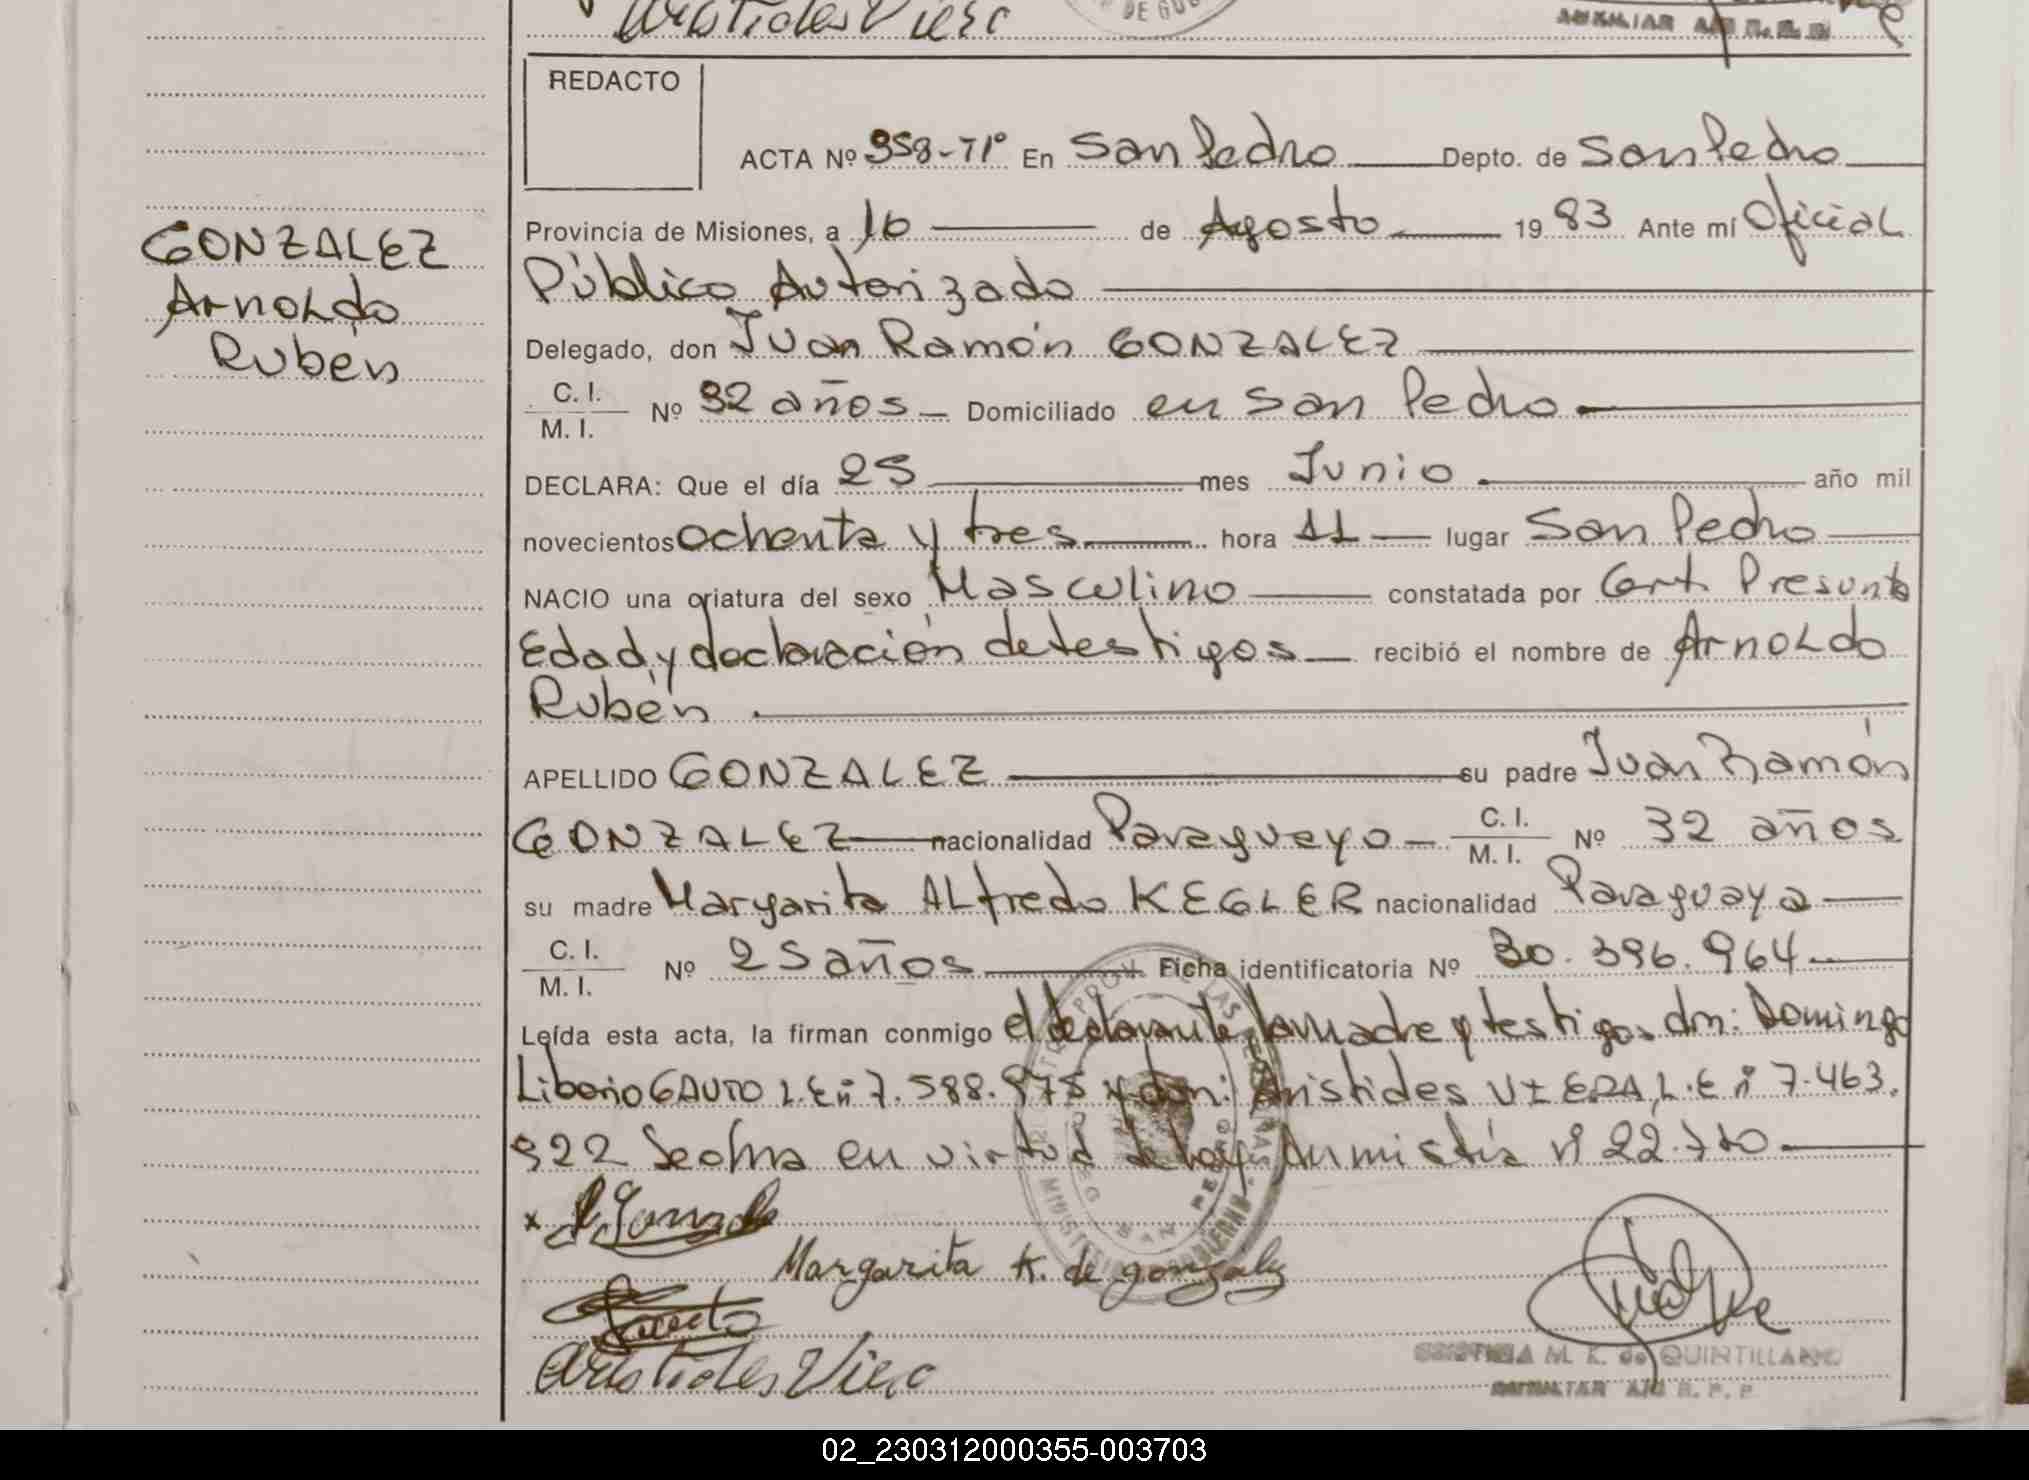 Aristides Viera
DE GOB
AUXILIAR A/C R.P.P
REDACTO
ACTA Nº 358-T1º En San Pedro Depto. de San Pedro
Provincia de Misiones, a 16 de Agosto 1983 Ante mí Oficial
Público Autorizado
GONZALEZ
Arnoldo
Rubén
Delegado, don Juan Ramón GONZALEZ
C. I.
M. I. Nº 32 años Domiciliado en San Pedro
DECLARA: Que el día 25 mes Junio año mil
novecientos ochenta y tres hora 11 lugar San Pedro
NACIO una criatura del sexo Masculino constatada por Cert. Presunta
Edad y declaración de testigos recibió el nombre de Arnoldo
Rubén
APELLIDO GONZALEZ su padre Juan Ramón
GONZALEZ nacionalidad Paraguayo C. I.
M. I. Nº 32 años
su madre Margarita ALfredo KEGLER nacionalidad Paraguaya
C. I.
M. I. Nº 25 años Ficha identificatoria Nº 30.396.964
Leída esta acta, la firman conmigo el declarante, la madre y testigos don: Domingo
Liborio GAUTO L.E nº 7.588.975 y don: Aristides VIERA, L.E nº 7.463.
922 Se olma en virtud de ley Anmistía nº 22.770
Margarita K. de gonzalez
Gauto
Aristides Viera
M. K. de QUINTILLANO
AUXILIAR A/C R. P. P
02_230312000355-003703